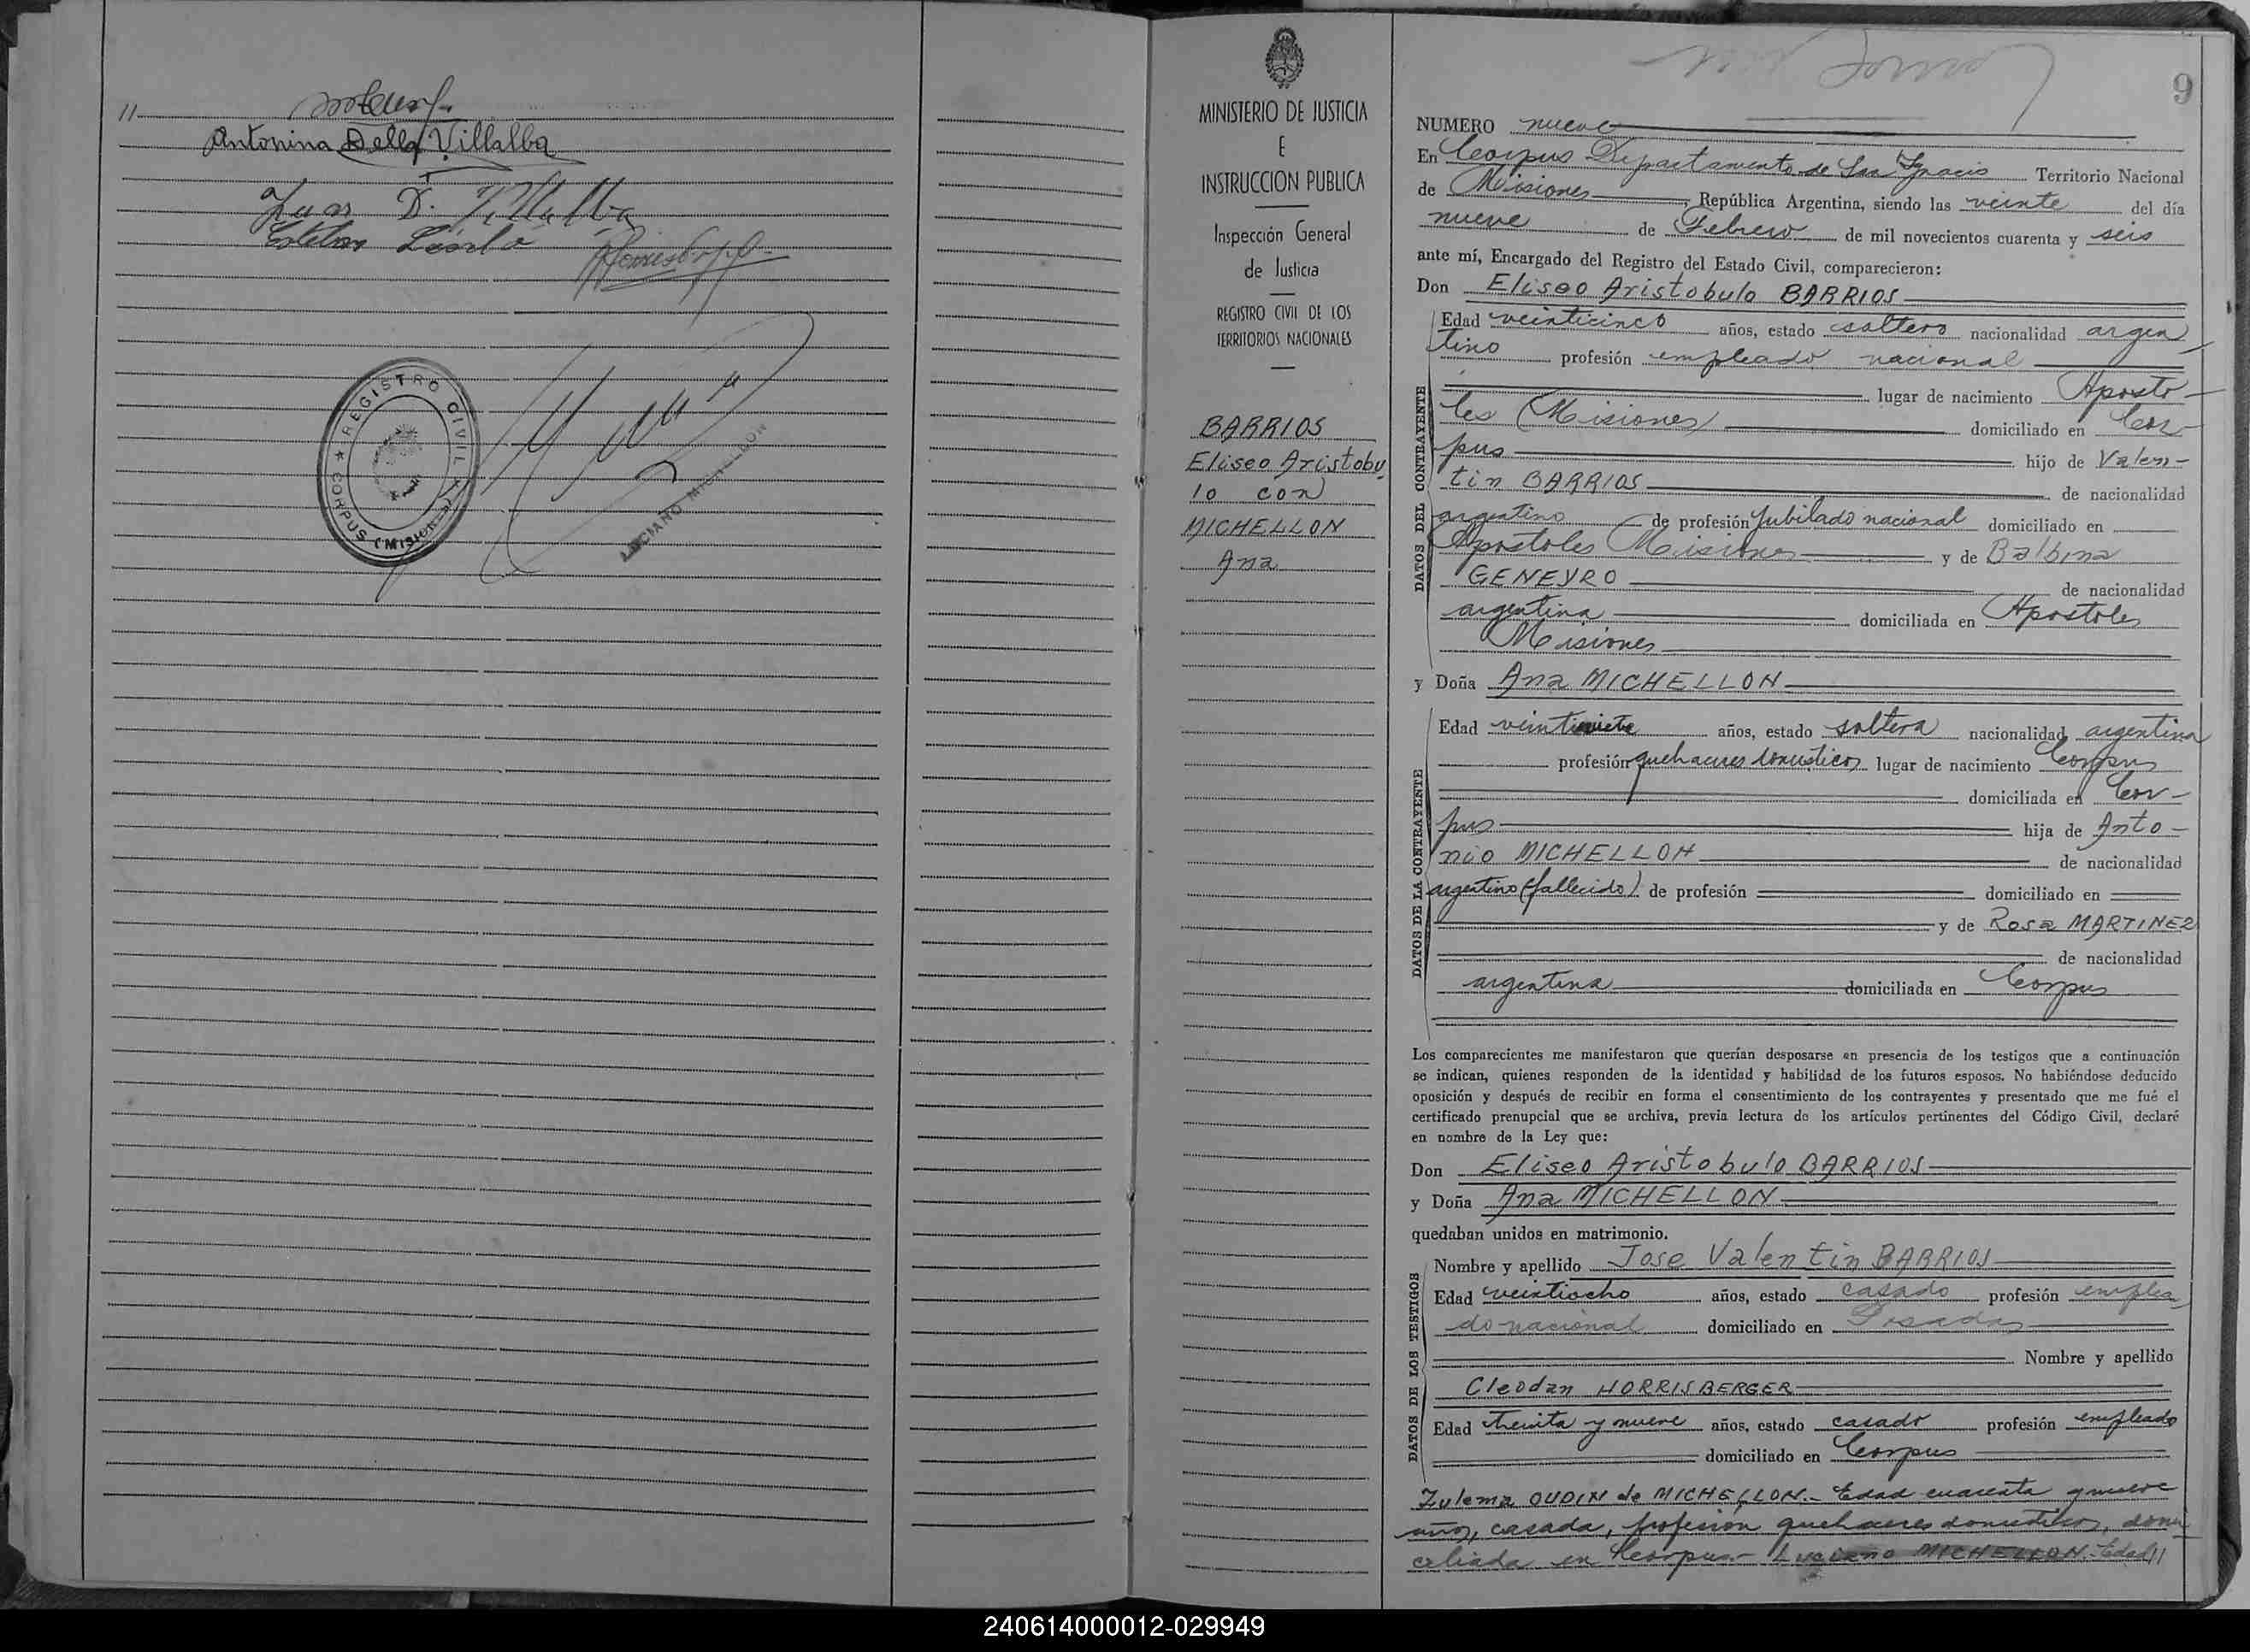 11
Antonina Della Villalba
Juan D. Villalba
REGISTRO CIVIL
CORPUS (Misiones)
LUCIANO MICHELLON
MINISTERIO DE JUSTICIA
E
INSTRUCCION PUBLICA
Inspección General
de Justicia
REGISTRO CIVIL DE LOS
TERRITORIOS NACIONALES
BARRIOS
Eliseo Aristobu
lo con
MICHELLON
Ana
9
NUMERO nueve
En Corpus Departamento de San Ignacio Territorio Nacional
de Misiones, República Argentina, siendo las veinte del día
nueve de Febrero de mil novecientos cuarenta y seis
ante mí, Encargado del Registro del Estado Civil, comparecieron:
Don Eliseo Aristobulo BARRIOS
DATOS DEL CONTRAYENTE
Edad veinticinco años, estado soltero nacionalidad argen
tino profesión empleado nacional
lugar de nacimiento Aposto-
les (Misiones) domiciliado en Cor-
pus hijo de Valen-
tin BARRIOS de nacionalidad
argentino de profesión Jubilado nacional domiciliado en
Apostoles Misiones y de Balbina
GENEYRO de nacionalidad
argentina domiciliada en Apostoles
Misiones
y Doña Ana MICHELLON
DATOS DE LA CONTRAYENTE
Edad años, estado soltera nacionalidad argentina
profesión quehaceres domesticos lugar de nacimiento Corpus
domiciliada en Cor-
pus hija de Anto-
nio MICHELLON de nacionalidad
argentino (fallecido) de profesión domiciliado en
y de Rosa MARTINEZ
de nacionalidad
argentina domiciliada en Corpus
Los comparecientes me manifestaron que querían desposarse en presencia de los testigos que a continuación
se indican, quienes responden de la identidad y habilidad de los futuros esposos. No habiéndose deducido
oposición y después de recibir en forma el consentimiento de los contrayentes y presentado que me fué el
certificado prenupcial que se archiva, previa lectura de los artículos pertinentes del Código Civil, declaré
en nombre de la Ley que:
Don Eliseo Aristobulo BARRIOS
y Doña Ana MICHELLON
quedaban unidos en matrimonio.
DATOS DE LOS TESTIGOS
Nombre y apellido Jose Valentin BARRIOS
Edad veintiocho años, estado casado profesión emplea
do nacional domiciliado en Posadas
Nombre y apellido
Cleodan HORRISBERGER
Edad treinta y nueve años, estado casado profesión empleado
domiciliado en Corpus
Zulema OUDIN de MICHELLON.- Edad cuarenta y nueve
años, casada, profesión quehaceres domesticos, domi
ciliada en Corpus- Luciano MICHELLON.- Edad 11
240614000012-029949